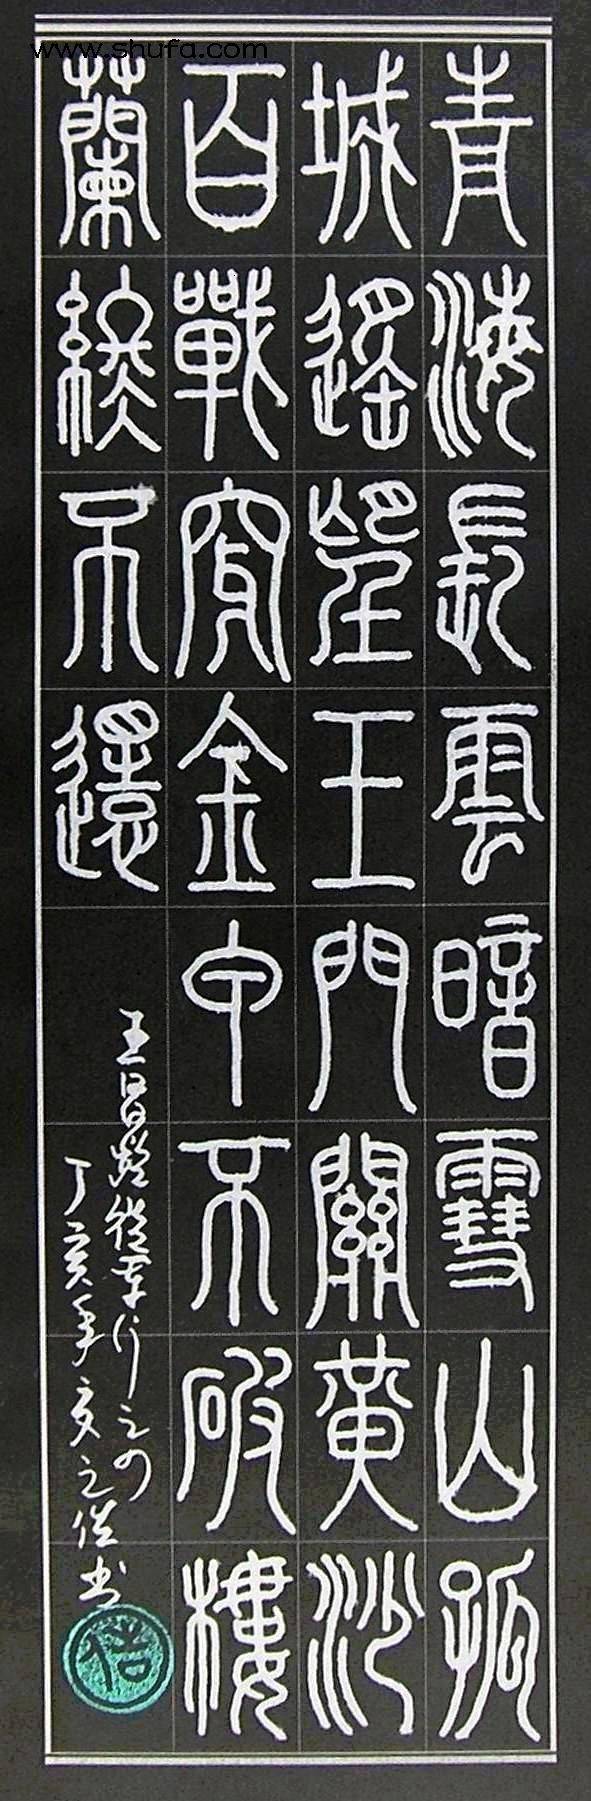 www.shufa.com
青海長雲暗雪山孤
城遙望玉門關黃沙
百戰穿金甲不破樓
蘭終不還
王昌齡從軍行之四
丁亥年之书